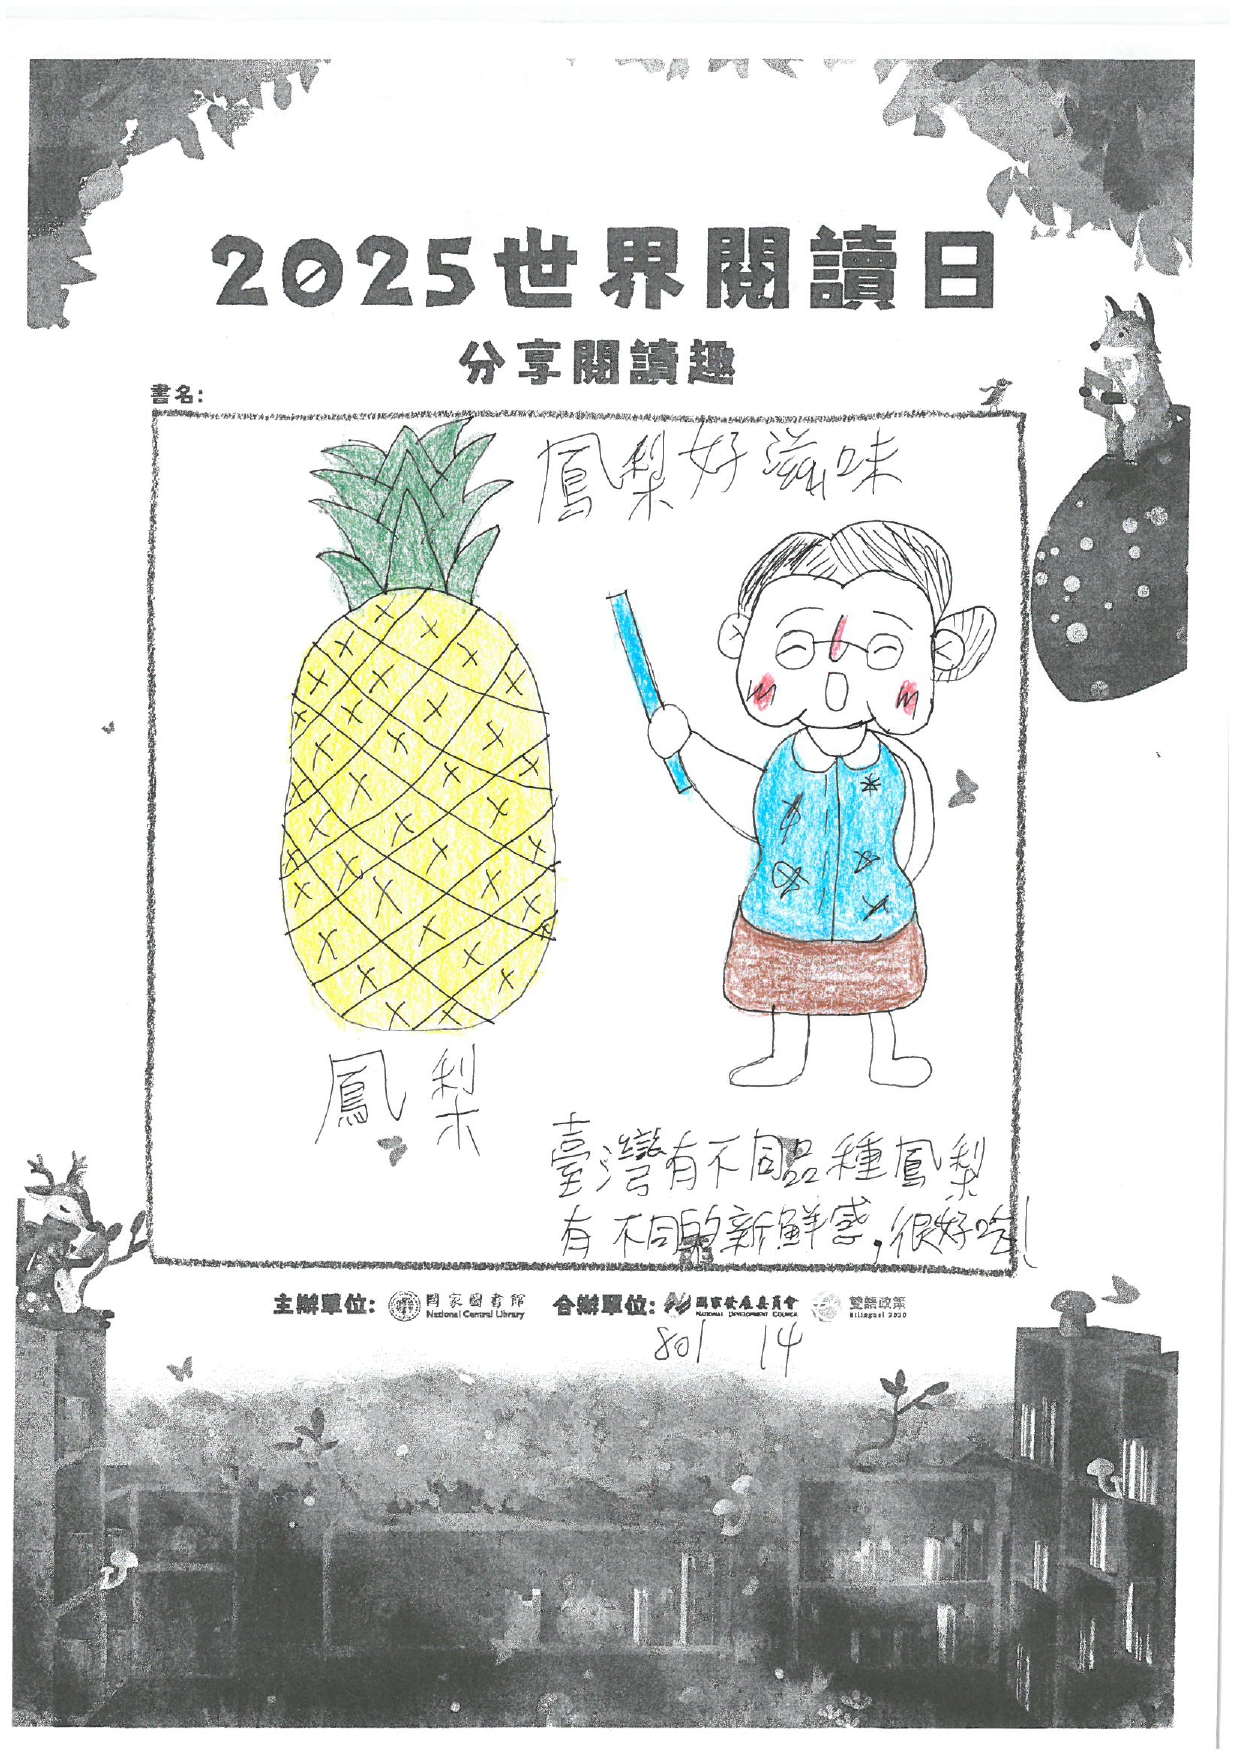 2025世界閱讀日
分享閱讀趣
書名:
鳳梨好滋味
鳳梨
臺灣有不同品種鳳梨
有不同的新鮮感,很好吃!
主辦單位: 國家圖書館 National Central Library 合辦單位: 國家發展委員會 NATIONAL DEVELOPMENT COUNCIL 雙語政策 Bilingual 2030
801 14